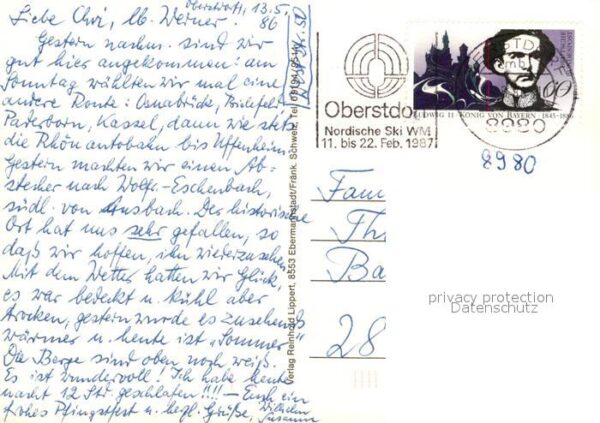 Oberstdorf, 13.5.
86
Liebe Chri, lb. Werner!
Gestern nachm. sind wir
gut hier angekommen: am
Sonntag wählten wir mal eine
andere Route: Osnabrück, Bielefeld
Paderborn, Kassel, dann wie stets
die Rhönautobahn bis Uffenheim
Gestern machten wir einen Ab-
stecher nach Wolfr.-Eschenbach,
südl. von Ansbach. Der historische
Ort hat uns sehr gefallen, so
daß wir hoffen, ihn wiederzusehen
Mit dem Wetter hatten wir Glück,
es war bedeckt u. kühl aber
trocken, gestern wurde es zusehends
wärmer u. heute ist "Sommer"
Die Berge sind oben noch weiß.
Es ist wundervoll! Ich habe heute
nacht 12 Std. geschlafen!!!! — Euch ein
frohes Pfingstfest u. herzl. Grüße, Wilhelm
Susanne
Verlag Reinhold Lippert, 8553 Ebermannstadt/Fränk. Schweiz, Tel.
Oberstdorf
Nordische Ski WM
11. bis 22. Feb. 1987
LUDWIG II · KÖNIG VON BAYERN · 1845-1886
60
8980
8980
Fam
Th
Ba
28
privacy protection
Datenschutz